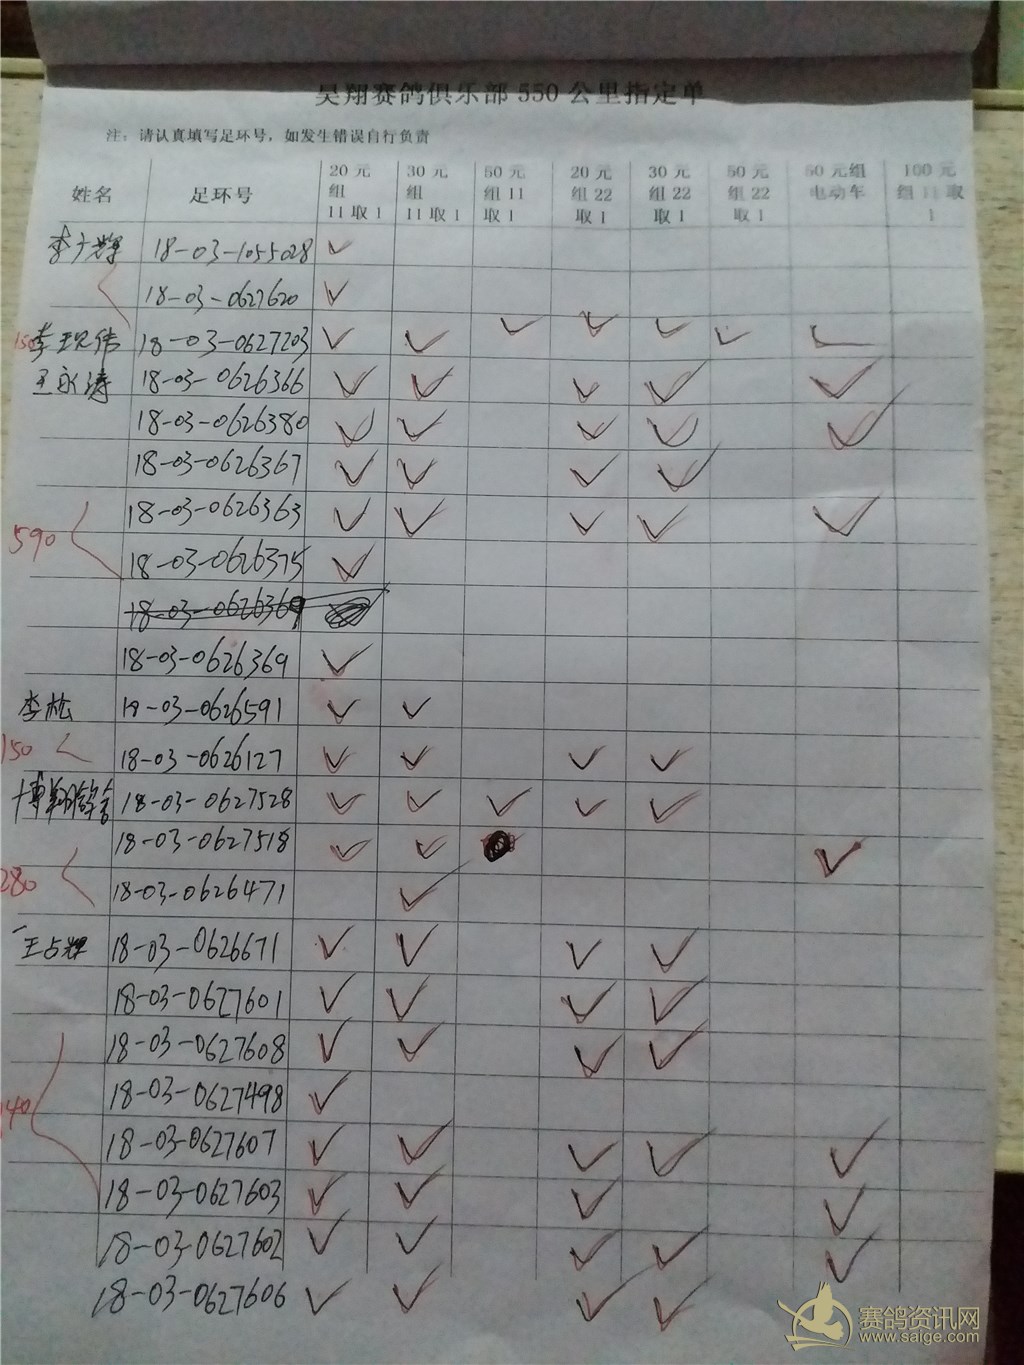 昊翔赛鸽俱乐部 550 公里指定单
注：请认真填写足环号，如发生错误自行负责
姓名 足环号 20 元组 11 取 1 30 元组 11 取 1 50 元组 11 取 1 20 元组 22 取 1 30 元组 22 取 1 50 元组 22 取 1 50 元组 电动车 100 元组 11 取 1
李广辉 18-03-1055028 ✓
18-03-0627620 ✓
150 李现伟 18-03-0627203 ✓ ✓ ✓ ✓ ✓ ✓ ✓
王永涛 18-03-0626366 ✓ ✓ ✓ ✓ ✓
18-03-0626380 ✓ ✓ ✓ ✓ ✓
18-03-0626367 ✓ ✓ ✓ ✓
18-03-0626363 ✓ ✓ ✓ ✓ ✓
590 18-03-0626375 ✓
18-03-0626369
18-03-0626369 ✓
李松 18-03-0626591 ✓ ✓
150 18-03-0626127 ✓ ✓ ✓ ✓
博翔鸽舍 18-03-0627528 ✓ ✓ ✓ ✓ ✓
18-03-0627518 ✓ ✓ ✓
280 18-03-0626471 ✓
王占辉 18-03-0626671 ✓ ✓ ✓ ✓
18-03-0627601 ✓ ✓ ✓ ✓
18-03-0627608 ✓ ✓ ✓ ✓
140 18-03-0627498 ✓
18-03-0627607 ✓ ✓ ✓ ✓ ✓
18-03-0627603 ✓ ✓ ✓ ✓
18-03-0627602 ✓ ✓ ✓ ✓ ✓
18-03-0627606 ✓ ✓ ✓ ✓
赛鸽资讯网
www.saige.com